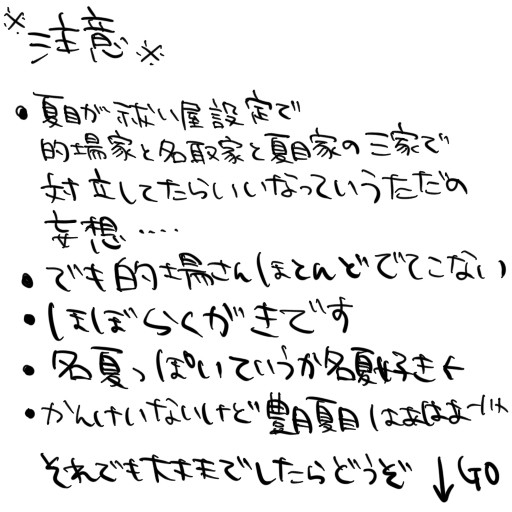 ※注意※
・夏目が祓い屋設定で
的場家と名取家と夏目家の三家で
対立してたらいいなっていうただの
妄想‥‥
・でも的場さんほとんどでてこない
・ほぼらくがきです
・名夏っぽいていうか名夏好き←
・かんけいないけど豊月夏目はあはあ
それでも大丈夫でしたらどうぞ ↓GO